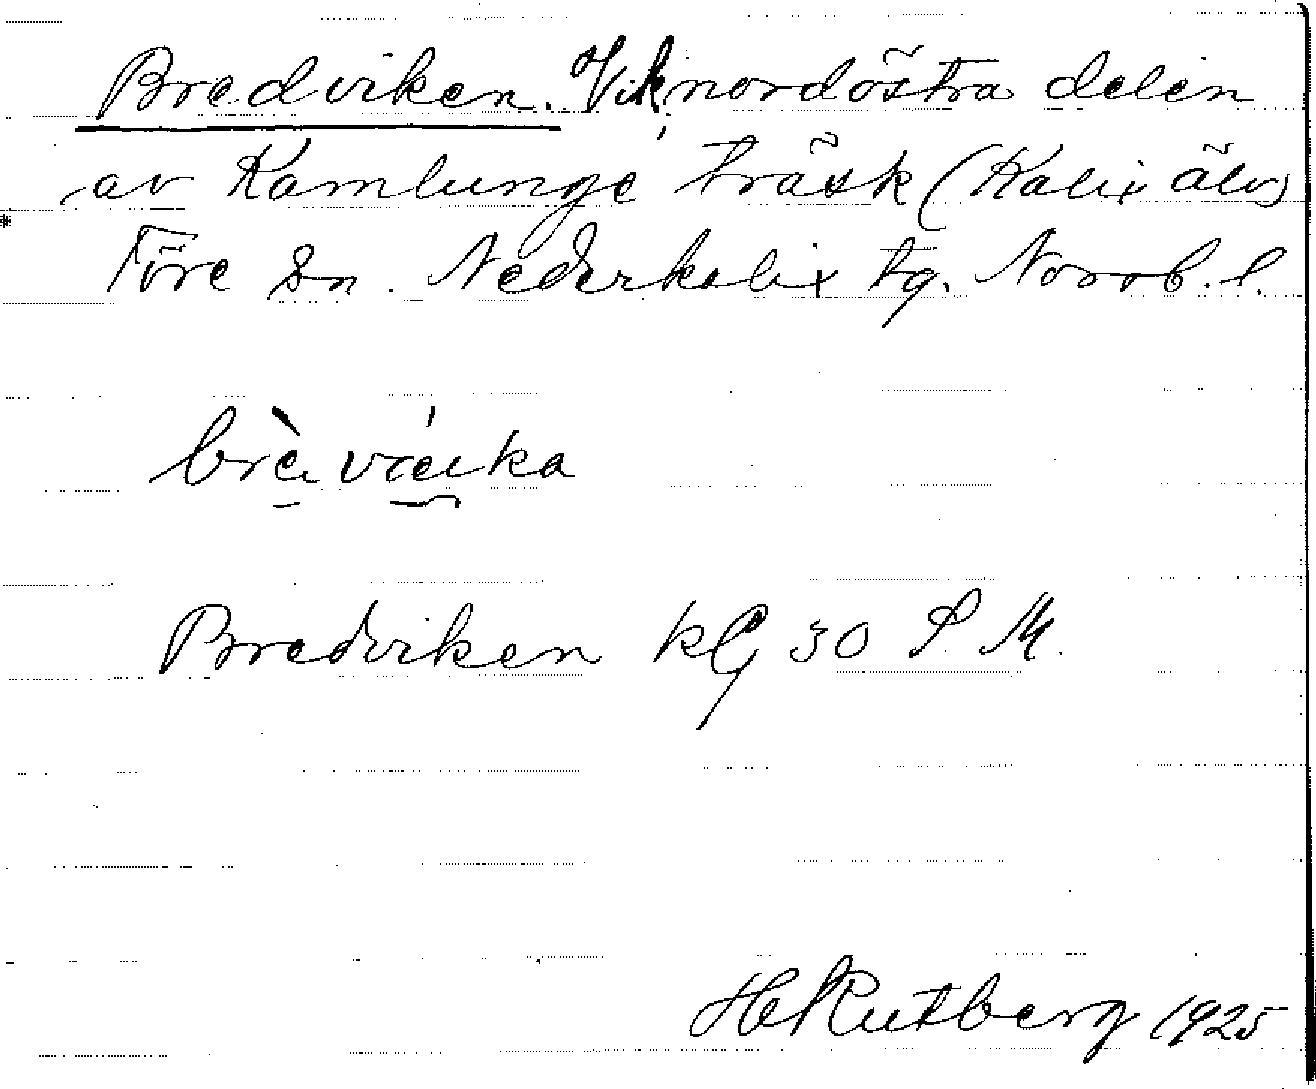 Bredviken. Vik, nordöstra delen
av Kamlunge träsk (Kalix älv)
Töre sn. Nederkalix tg. Norrb. l.
Bredviken 30 S. M.
H Rutberg 1925